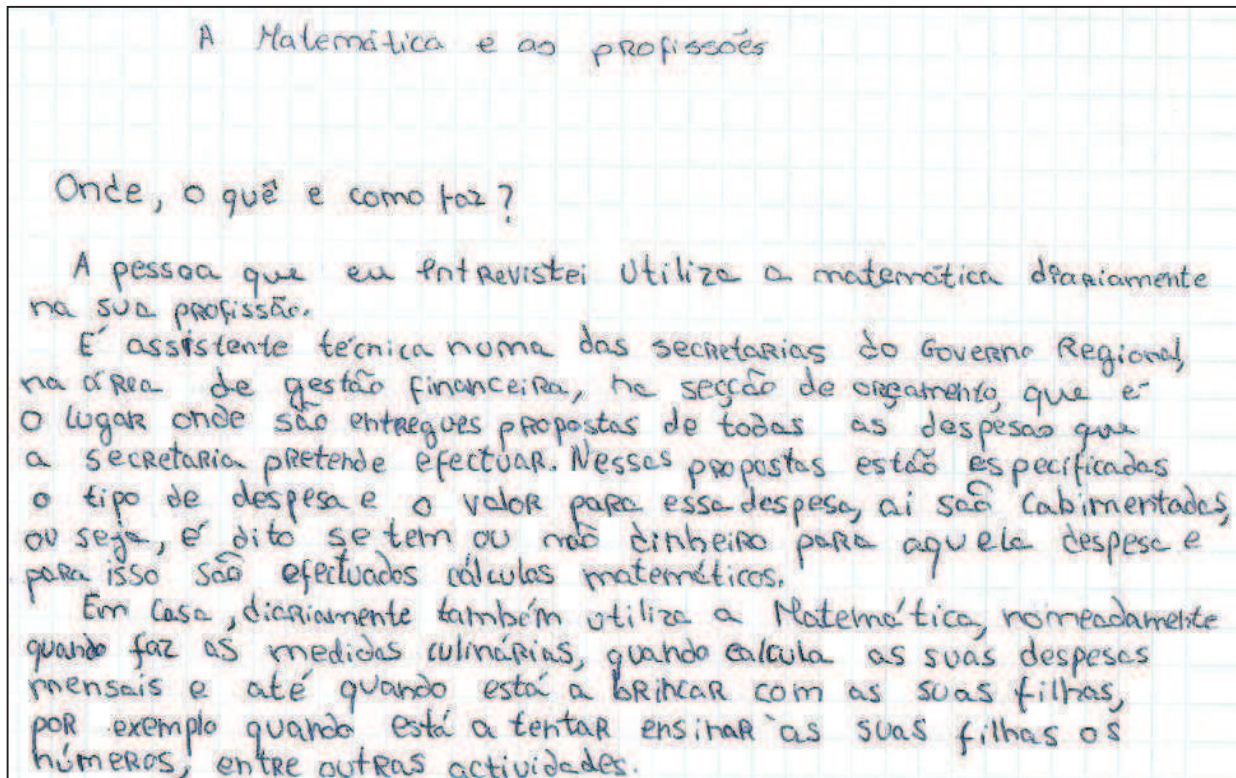 A Matemática e as profissões
Onde, o quê e como faz?
A pessoa que eu entrevistei utiliza a matemática diariamente
na sua profissão.
É assistente técnica numa das secretarias do Governo Regional,
na área de gestão financeira, na secção de orçamento, que é
o lugar onde são entregues propostas de todas as despesas que
a secretaria pretende efectuar. Nessas propostas estão especificadas
o tipo de despesa e o valor para essa despesa, aí são cabimentadas,
ou seja, é dito se tem ou não dinheiro para aquela despesa e
para isso são efectuados cálculos matemáticos.
Em casa, diariamente também utiliza a Matemática, nomeadamente
quando faz as medidas culinárias, quando calcula as suas despesas
mensais e até quando está a brincar com as suas filhas,
por exemplo quando está a tentar ensinar às suas filhas os
números, entre outras actividades.